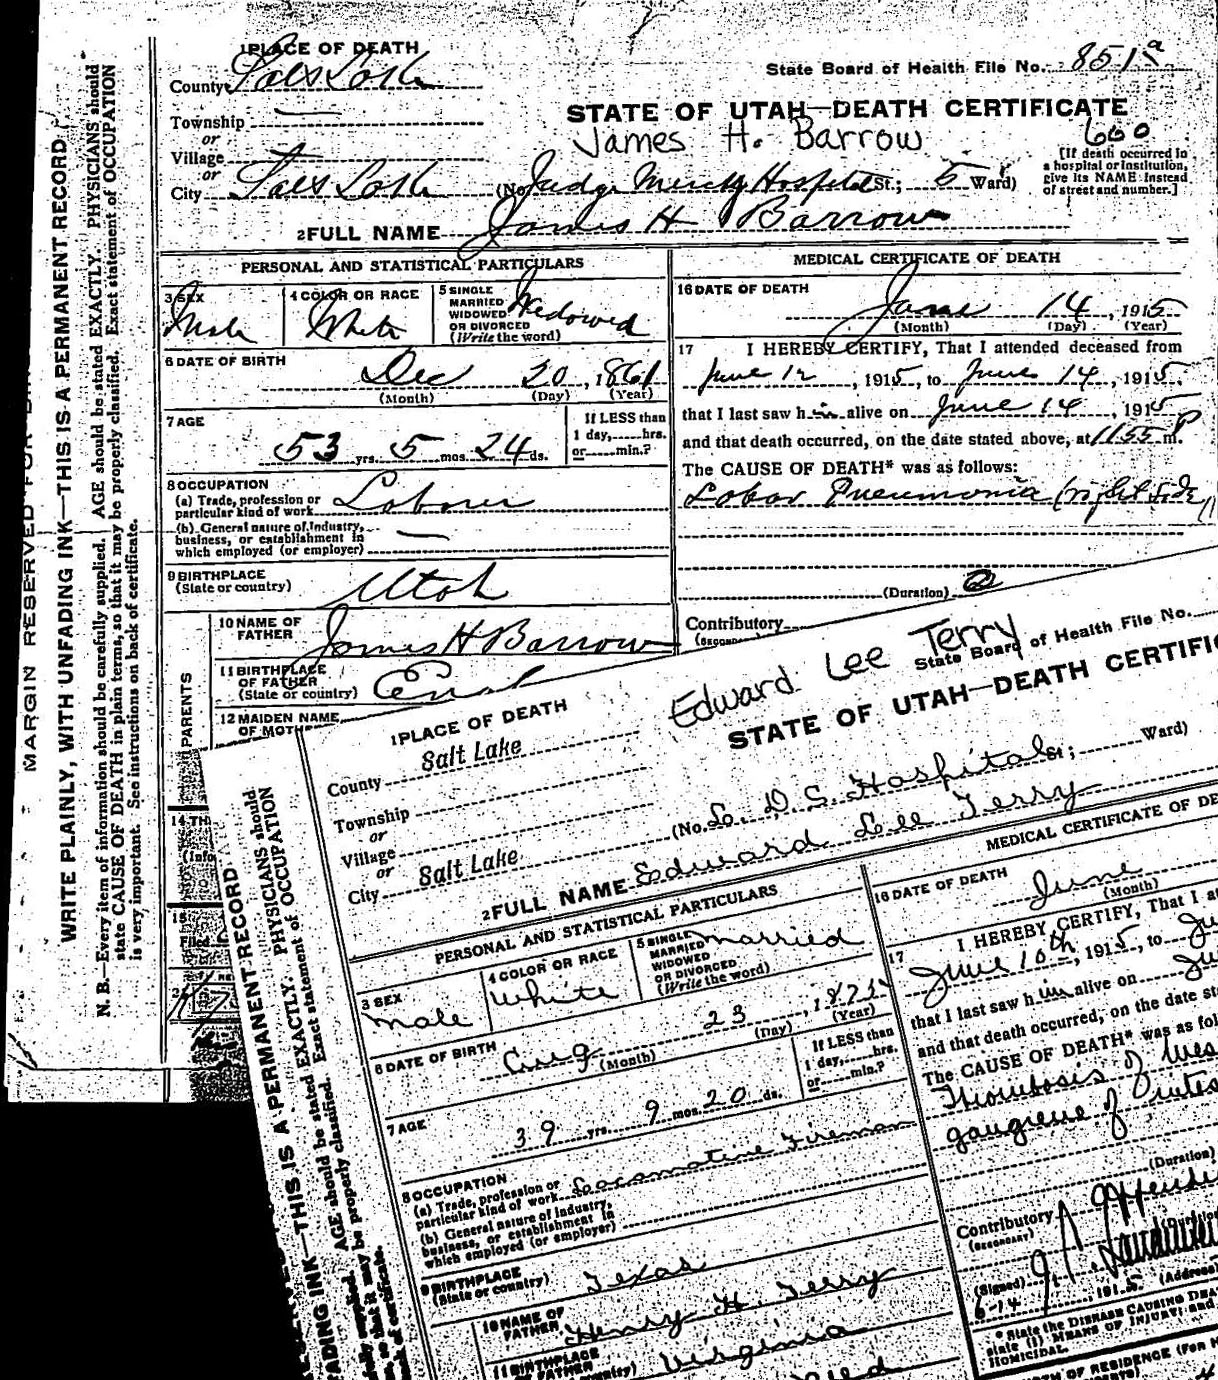 1 PLACE OF DEATH
County Salt Lake
State Board of Health File No. 851a
Township
or
Village
or
City Salt Lake
STATE OF UTAH—DEATH CERTIFICATE
James H. Barrow
660
[If death occurred in
a hospital or institution,
give its NAME instead
of street and number.]
(No. Judge Mercy Hospital St.; 5 Ward)
2 FULL NAME James H Barrow
PERSONAL AND STATISTICAL PARTICULARS
3 SEX
Male
4 COLOR OR RACE
White
5 SINGLE
MARRIED
WIDOWED
OR DIVORCED
(Write the word)
Widowed
6 DATE OF BIRTH
Dec 20, 1861
(Month) (Day) (Year)
7 AGE
53 yrs. 5 mos. 24 ds.
If LESS than
1 day,......hrs.
or......min.?
8 OCCUPATION
(a) Trade, profession or
particular kind of work Laborer
(b) General nature of Industry,
business, or establishment in
which employed (or employer)
9 BIRTHPLACE
(State or country) Utah
PARENTS
10 NAME OF
FATHER James H Barrow
11 BIRTHPLACE
OF FATHER
(State or country)
12 MAIDEN NAME
OF MOTH
14 TH
(Info
15
Filed
MEDICAL CERTIFICATE OF DEATH
16 DATE OF DEATH
June 14, 1915
(Month) (Day) (Year)
17 I HEREBY CERTIFY, That I attended deceased from
June 12, 1915, to June 14, 1915.
that I last saw him alive on June 14, 1915
and that death occurred, on the date stated above, at 1155 P m.
The CAUSE OF DEATH* was as follows:
Lobar Pneumonia (right side)
(Duration)
Contributory
MARGIN RESERVED FOR
WRITE PLAINLY, WITH UNFADING INK—THIS IS A PERMANENT RECORD
N. B.—Every item of information should be carefully supplied. AGE should be stated EXACTLY. PHYSICIANS should
state CAUSE OF DEATH in plain terms, so that it may be properly classified. Exact statement of OCCUPATION
is very important. See instructions on back of certificate.
Edward Lee Terry
State Board of Health File No.
STATE OF UTAH—DEATH CERTIFIC
1 PLACE OF DEATH
County Salt Lake
Township
or
Village
or
City Salt Lake
(No. L. D. S. Hospital St.; Ward)
2 FULL NAME Edward Lee Terry
PERSONAL AND STATISTICAL PARTICULARS
3 SEX
male
4 COLOR OR RACE
White
5 SINGLE
MARRIED
WIDOWED
OR DIVORCED
(Write the word)
married
6 DATE OF BIRTH
Aug 23, 1875
(Month) (Day) (Year)
7 AGE
39 yrs. 9 mos. 20 ds.
If LESS than
1 day,......hrs.
or......min.?
8 OCCUPATION
(a) Trade, profession or
particular kind of work Locomotive Fireman
(b) General nature of Industry,
business, or establishment in
which employed (or employer)
9 BIRTHPLACE
(State or country) Texas
10 NAME OF
FATHER Henry H. Terry
11 BIRTHPLACE
Virginia
MEDICAL CERTIFICATE OF DE
16 DATE OF DEATH
June
(Month)
17 I HEREBY CERTIFY, That I at
June 10th, 1915, to Ju
that I last saw him alive on Ju
and that death occurred, on the date st
The CAUSE OF DEATH* was as fol
Thrombosis of Mes
gangrene of Intes
(Duration)
Contributory
(SECONDARY)
(Signed)
6-14 1915 (Address)
* State the DISEASE CAUSING DEA
state (1) MEANS OF INJURY; and
HOMICIDAL.
TH OF RESIDENCE (FOR H
THIS IS A PERMANENT RECORD
AGE should be stated EXACTLY. PHYSICIANS should
be properly classified. Exact statement of OCCUPATION